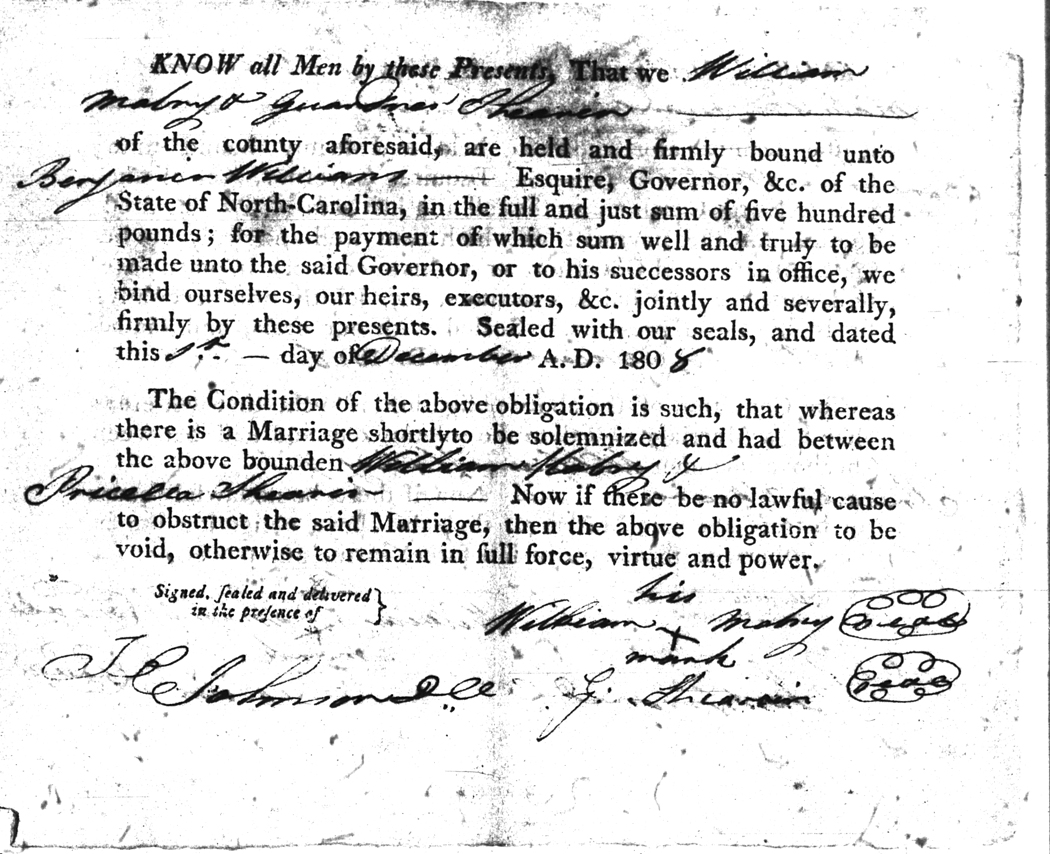 KNOW all Men by these Presents, That we William
Mabry & Shearin
of the county aforesaid, are held and firmly bound unto
Benjamin Williams Esquire, Governor, &c. of the
State of North-Carolina, in the full and just sum of five hundred
pounds; for the payment of which sum well and truly to be
made unto the said Governor, or to his successors in office, we
bind ourselves, our heirs, executors, &c. jointly and severally,
firmly by these presents. Sealed with our seals, and dated
this — day of December A. D. 1808
The Condition of the above obligation is such, that whereas
there is a Marriage shortly to be solemnized and had between
the above bounden William Mabry &
Shearin Now if there be no lawful cause
to obstruct the said Marriage, then the above obligation to be
void, otherwise to remain in full force, virtue and power.
Signed, ſealed and delivered }
in the preſence of
his
William X Mabry Seal
mark
Johnson G. Shearin Seal